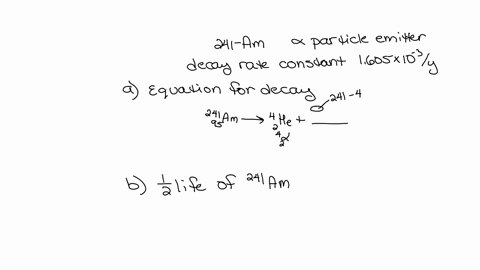 241-Am α particle emitter
decay rate constant 1.605×10⁻³/y
a) Equation for decay
241-4
²⁴¹₉₅Am → ⁴₂He + ____
⁴₂α
b) ½ life of ²⁴¹Am